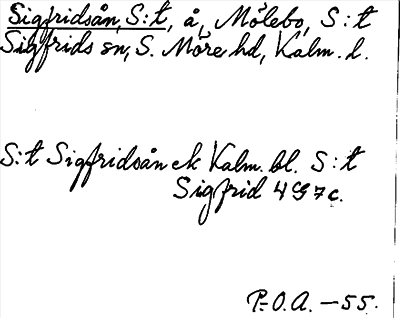 Sigfridsån, S:t, å, Mölebo, S:t
Sigfrids sn, S. Möre hd, Kalm. l.
S:t Sigfridsån ek Kalm. bl. S:t
Sigfrid 4G7c.
P.-O.A. -55.